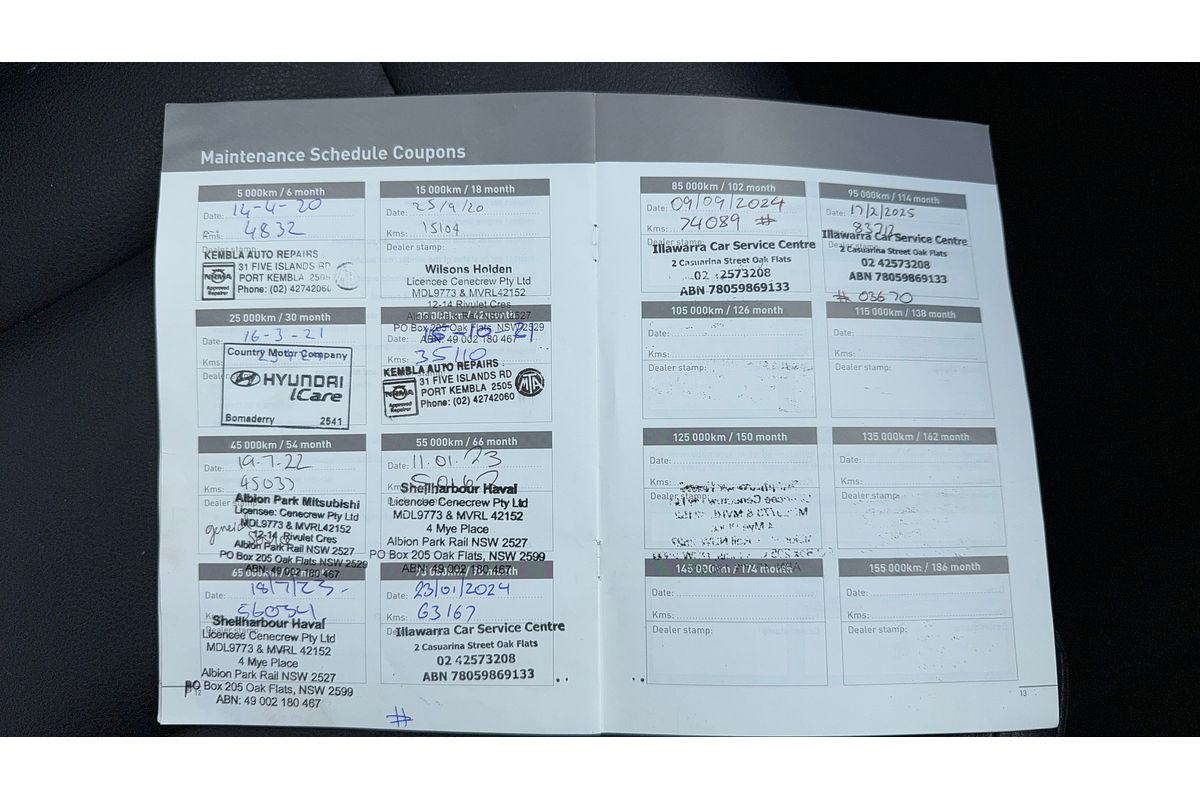 Maintenance Schedule Coupons
5 000km / 6 month
Date: 14-4-20
Kms: 4832
Dealer stamp:
KEMBLA AUTO REPAIRS
NRMA
Approved
Repairer
31 FIVE ISLANDS RD
PORT KEMBLA 2505
Phone: (02) 42742060
15 000km / 18 month
Date: 25/9/20
Kms: 15104
Dealer stamp:
Wilsons Holden
Licencee Cenecrew Pty Ltd
MDL9773 & MVRL42152
12-14 Rivulet Cres
NSW 2527
PO Box 205 Oak Flats, NSW 2529
ABN: 49 002 180 467
25 000km / 30 month
Date: 16-3-21
Kms:
Dealer
Country Motor Company
HYUNDAI
iCare
Bomaderry 2541
Date: 16-10-21
Kms: 35110
KEMBLA AUTO REPAIRS
NRMA
Approved
Repairer
31 FIVE ISLANDS RD
PORT KEMBLA 2505
Phone: (02) 42742060
MTA
45 000km / 54 month
Date: 19-7-22
Kms: 45033
Dealer stamp:
Albion Park Mitsubishi
Licensee: Cenecrew Pty Ltd
MDL9773 & MVRL42152
12-14 Rivulet Cres
Albion Park Rail NSW 2527
PO Box 205 Oak Flats NSW 2529
ABN: 49 002 180 467
55 000km / 66 month
Date: 11.01.23
Kms:
Shellharbour Haval
Licencee Cenecrew Pty Ltd
MDL9773 & MVRL 42152
4 Mye Place
Albion Park Rail NSW 2527
PO Box 205 Oak Flats, NSW 2599
ABN: 49 002 180 467
65 000km
month
Date: 18/7/23
Kms: 56034
Dealer stamp:
Shellharbour Haval
Licencee Cenecrew Pty Ltd
MDL9773 & MVRL 42152
4 Mye Place
Albion Park Rail NSW 2527
PO Box 205 Oak Flats, NSW 2599
ABN: 49 002 180 467
Date: 23/01/2024
Kms: 63167
Illawarra Car Service Centre
2 Casuarina Street Oak Flats
02 42573208
ABN 78059869133
12
#
85 000km / 102 month
Date: 09/09/2024
Kms: 74089 #
Dealer stamp:
Illawarra Car Service Centre
2 Casuarina Street Oak Flats
02 42573208
ABN 78059869133
95 000km / 114 month
Date: 17/2/2025
Kms:
Dealer stamp:
Illawarra Car Service Centre
2 Casuarina Street Oak Flats
02 42573208
ABN 78059869133
# 03670
105 000km / 126 month
Date:
Kms:
Dealer stamp:
115 000km / 138 month
Date:
Kms:
Dealer stamp:
125 000km / 150 month
Date:
Kms:
Dealer stamp:
135 000km / 162 month
Date:
Kms:
Dealer stamp:
145 000km / 174 month
Date:
Kms:
Dealer stamp:
155 000km / 186 month
Date:
Kms:
Dealer stamp:
13